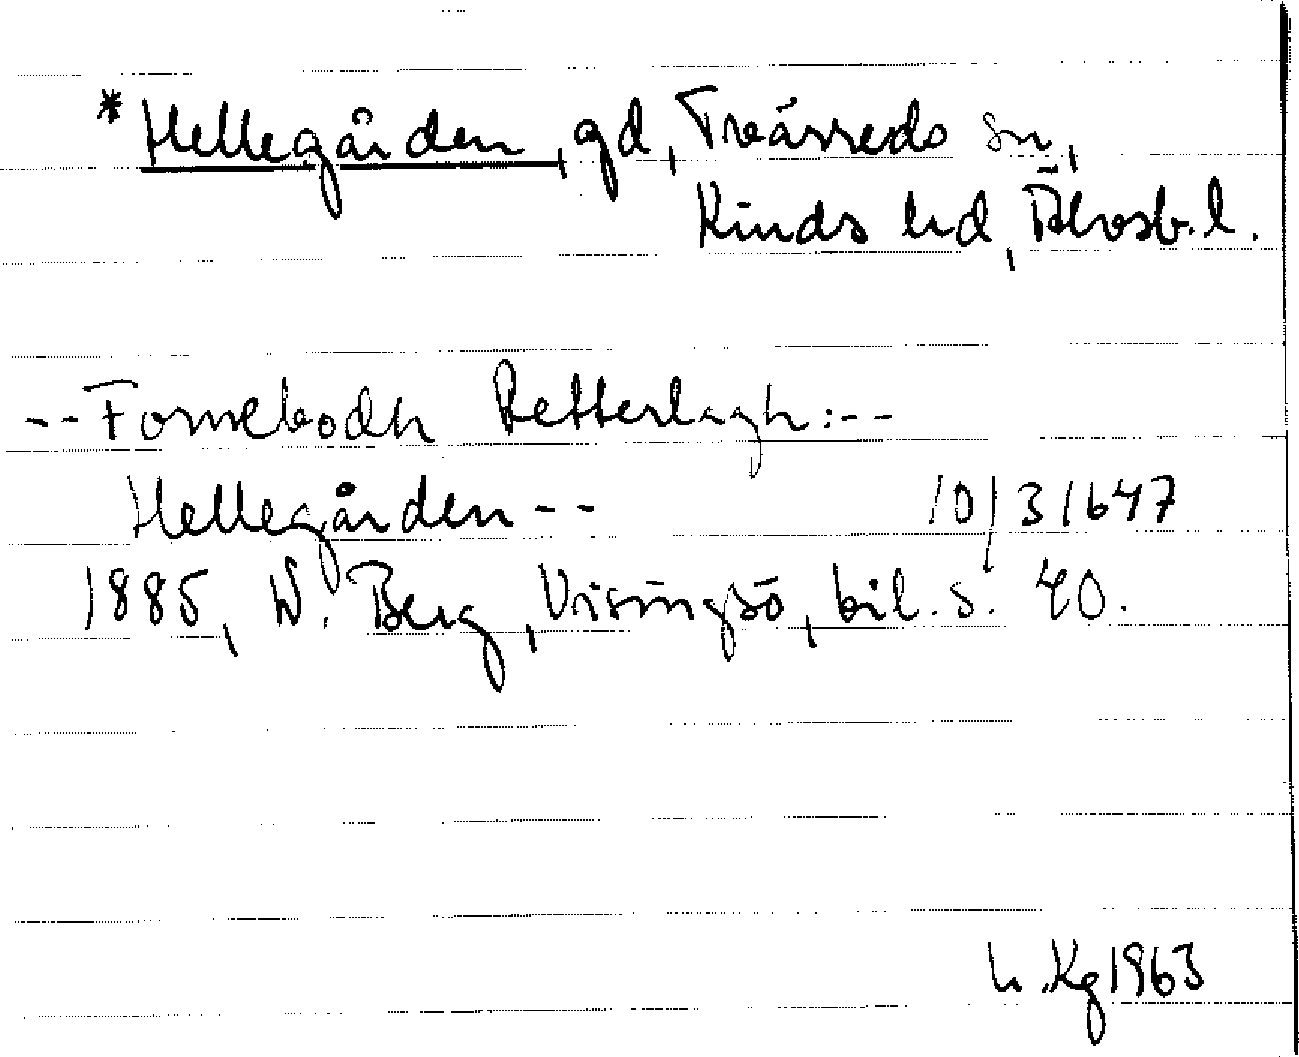 *Hellegården, gd, Treårreds sn,
Kinds hd, Älvsb. l.
--Fornebodh Retterlagh:--
Hellegården-- 10/3 1647
1885, W. Berg, Visingsö, bil. s. 40.
h. Kg 1963